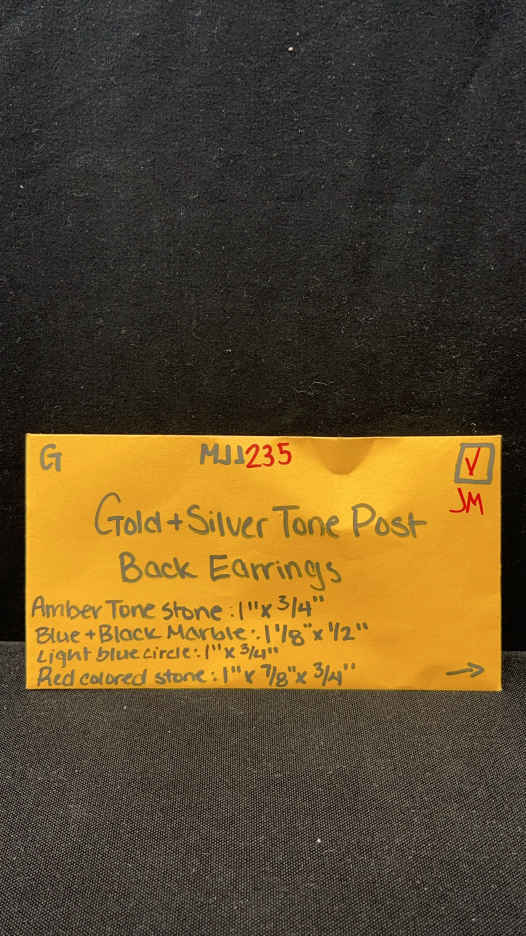 G MJJ235 ✓
JM
Gold + Silver Tone Post
Back Earrings
Amber Tone Stone: 1" x 3/4"
Blue + Black Marble: 1 1/8" x 1/2"
Light blue circle: 1" x 3/4"
Red colored stone: 1" x 7/8" x 3/4" →